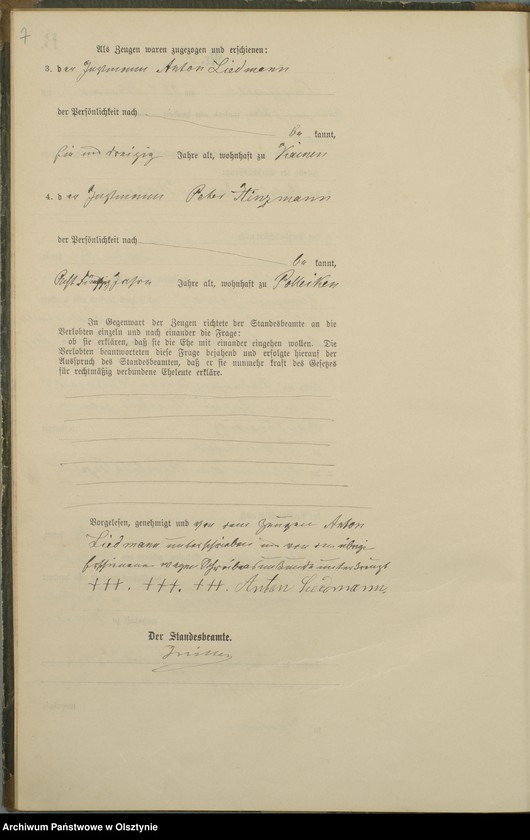 7
Als Zeugen waren zugezogen und erschienen:
3. der Instmann Anton Liedmann
der Persönlichkeit nach
be kannt,
ein und dreizig Jahre alt, wohnhaft zu
4. der Instmann Peter Hinzmann
der Persönlichkeit nach
be kannt,
Jahre alt, wohnhaft zu Polleiken
In Gegenwart der Zeugen richtete der Standesbeamte an die
Verlobten einzeln und nach einander die Frage:
ob sie erklären, daß sie die Ehe mit einander eingehen wollen. Die
Verlobten beantworteten diese Frage bejahend und erfolgte hierauf der
Ausspruch des Standesbeamten, daß er sie nunmehr kraft des Gesetzes
für rechtmäßig verbundene Eheleute erkläre.
Vorgelesen, genehmigt und von dem Zeugen Anton
Liedmann unterschrieben und von den übrigen
Erschienenen wegen Schreibensunkunde unterkreuzt
+++. +++. +++. Anton Liedmann
Der Standesbeamte.
Archiwum Państwowe w Olsztynie